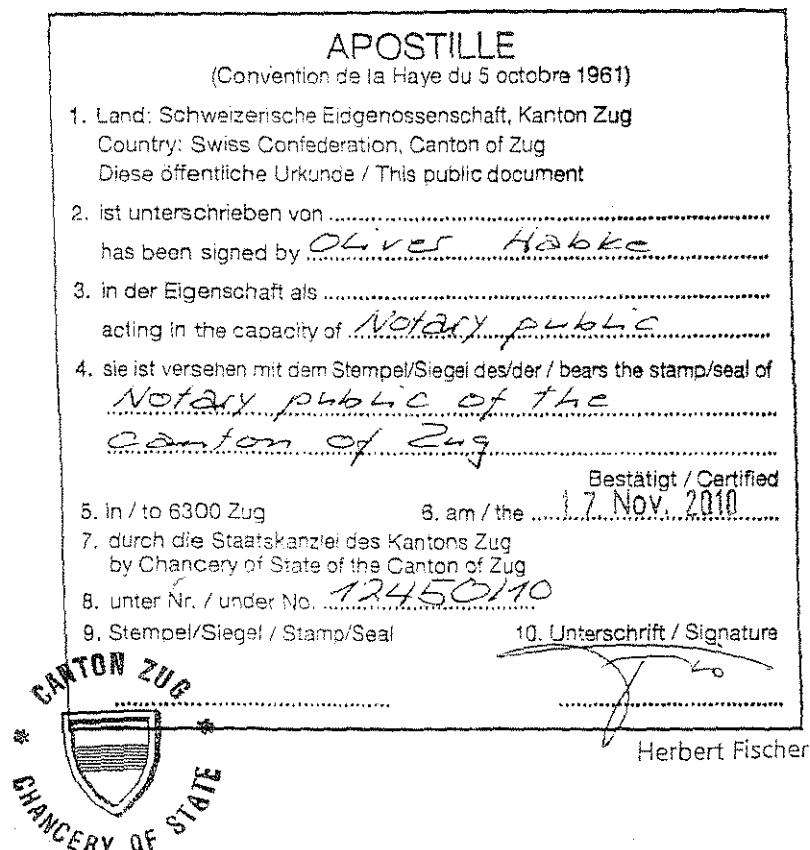 APOSTILLE
(Convention de la Haye du 5 octobre 1961)
1. Land: Schweizerische Eidgenossenschaft, Kanton Zug
Country: Swiss Confederation, Canton of Zug
Diese öffentliche Urkunde / This public document
2. ist unterschrieben von
has been signed by Oliver Habke
3. in der Eigenschaft als
acting in the capacity of Notary public
4. sie ist versehen mit dem Stempel/Siegel des/der / bears the stamp/seal of
Notary public of the
canton of Zug
Bestätigt / Certified
5. in / to 6300 Zug 6. am / the 17. Nov. 2010
7. durch die Staatskanzlei des Kantons Zug
by Chancery of State of the Canton of Zug
8. unter Nr. / under No. 12450/10
9. Stempel/Siegel / Stamp/Seal 10. Unterschrift / Signature
CANTON ZUG
* CHANCERY OF STATE *
Herbert Fischer